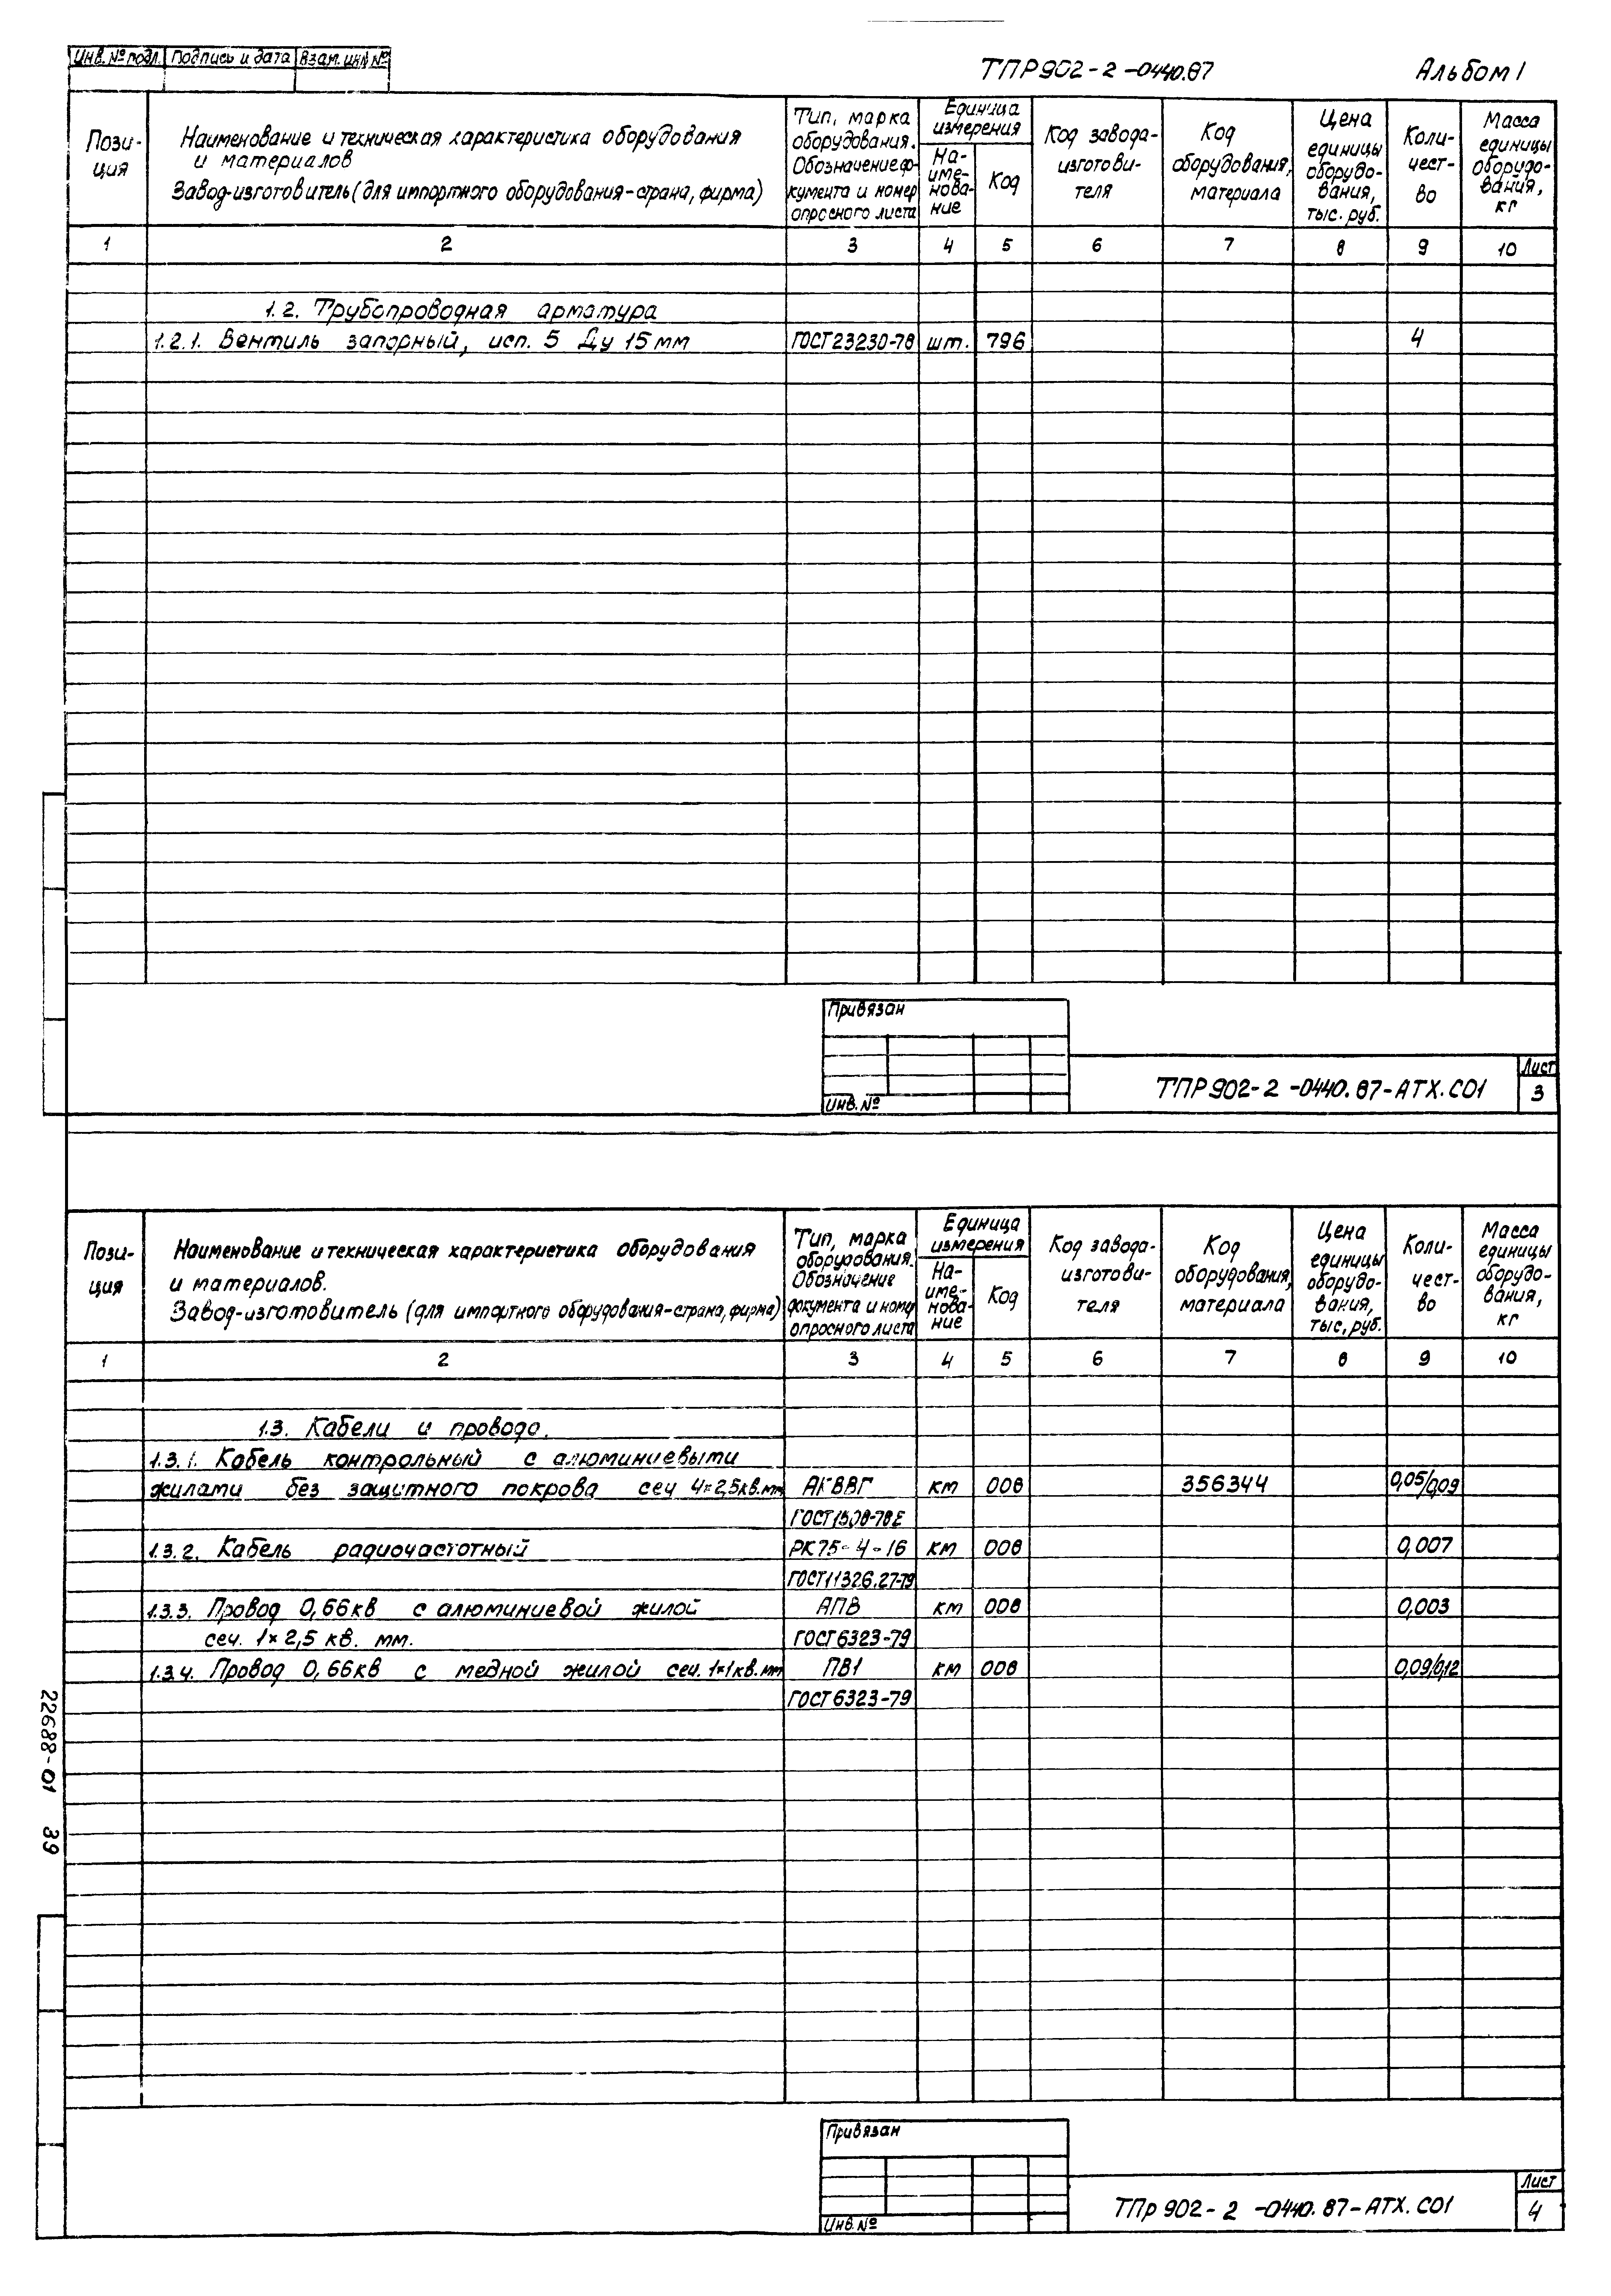 Инв. № подл. Подпись и дата Взам. инв №
ТПР 902-2-0440.87 Альбом I
Пози-
ция
Наименование и техническая характеристика оборудования
и материалов
Завод-изготовитель (для импортного оборудования-страна, фирма)
Тип, марка
оборудования.
Обозначение до-
кумента и номер
опросного листа
Единица
измерения
На-
име-
нова-
ние
Код
Код завода-
изготови-
теля
Код
оборудования,
материала
Цена
единицы
оборудо-
вания,
тыс. руб.
Коли-
чест-
во
Масса
единицы
оборудо-
вания,
кг
1 2 3 4 5 6 7 8 9 10
1.2. Трубопроводная арматура
1.2.1. Вентиль запорный, исп. 5 Ду 15 мм ГОСТ 23230-78 шт. 796 4
Привязан
Инв. №
ТПР 902-2-0440.87-АТХ.С01
Лист
3
Пози-
ция
Наименование и техническая характеристика оборудования
и материалов.
Завод-изготовитель (для импортного оборудования-страна, фирма)
Тип, марка
оборудования.
Обозначение
документа и номер
опросного листа
Единица
измерения
На-
име-
нова-
ние
Код
Код завода-
изготови-
теля
Код
оборудования,
материала
Цена
единицы
оборудо-
вания,
тыс, руб.
Коли-
чест-
во
Масса
единицы
оборудо-
вания,
кг
1 2 3 4 5 6 7 8 9 10
1.3. Кабели и провода.
1.3.1. Кабель контрольный с алюминиевыми
жилами без защитного покрова сеч 4×2,5кв.мм АКВВГ км 008 356344 0,05/0,09
ГОСТ 1508-78Е
1.3.2. Кабель радиочастотный РК 75-4-16 км 008 0,007
ГОСТ 11326.27-79
1.3.3. Провод 0,66кв с алюминиевой жилой АПВ км 008 0,003
сеч. 1×2,5 кв. мм. ГОСТ 6323-79
1.3.4. Провод 0,66кв с медной жилой сеч. 1×1кв.мм ПВ1 км 008 0,09/0,12
ГОСТ 6323-79
22688-01 39
Привязан
Инв. №
ТПр 902-2-0440.87-АТХ.С01
Лист
4